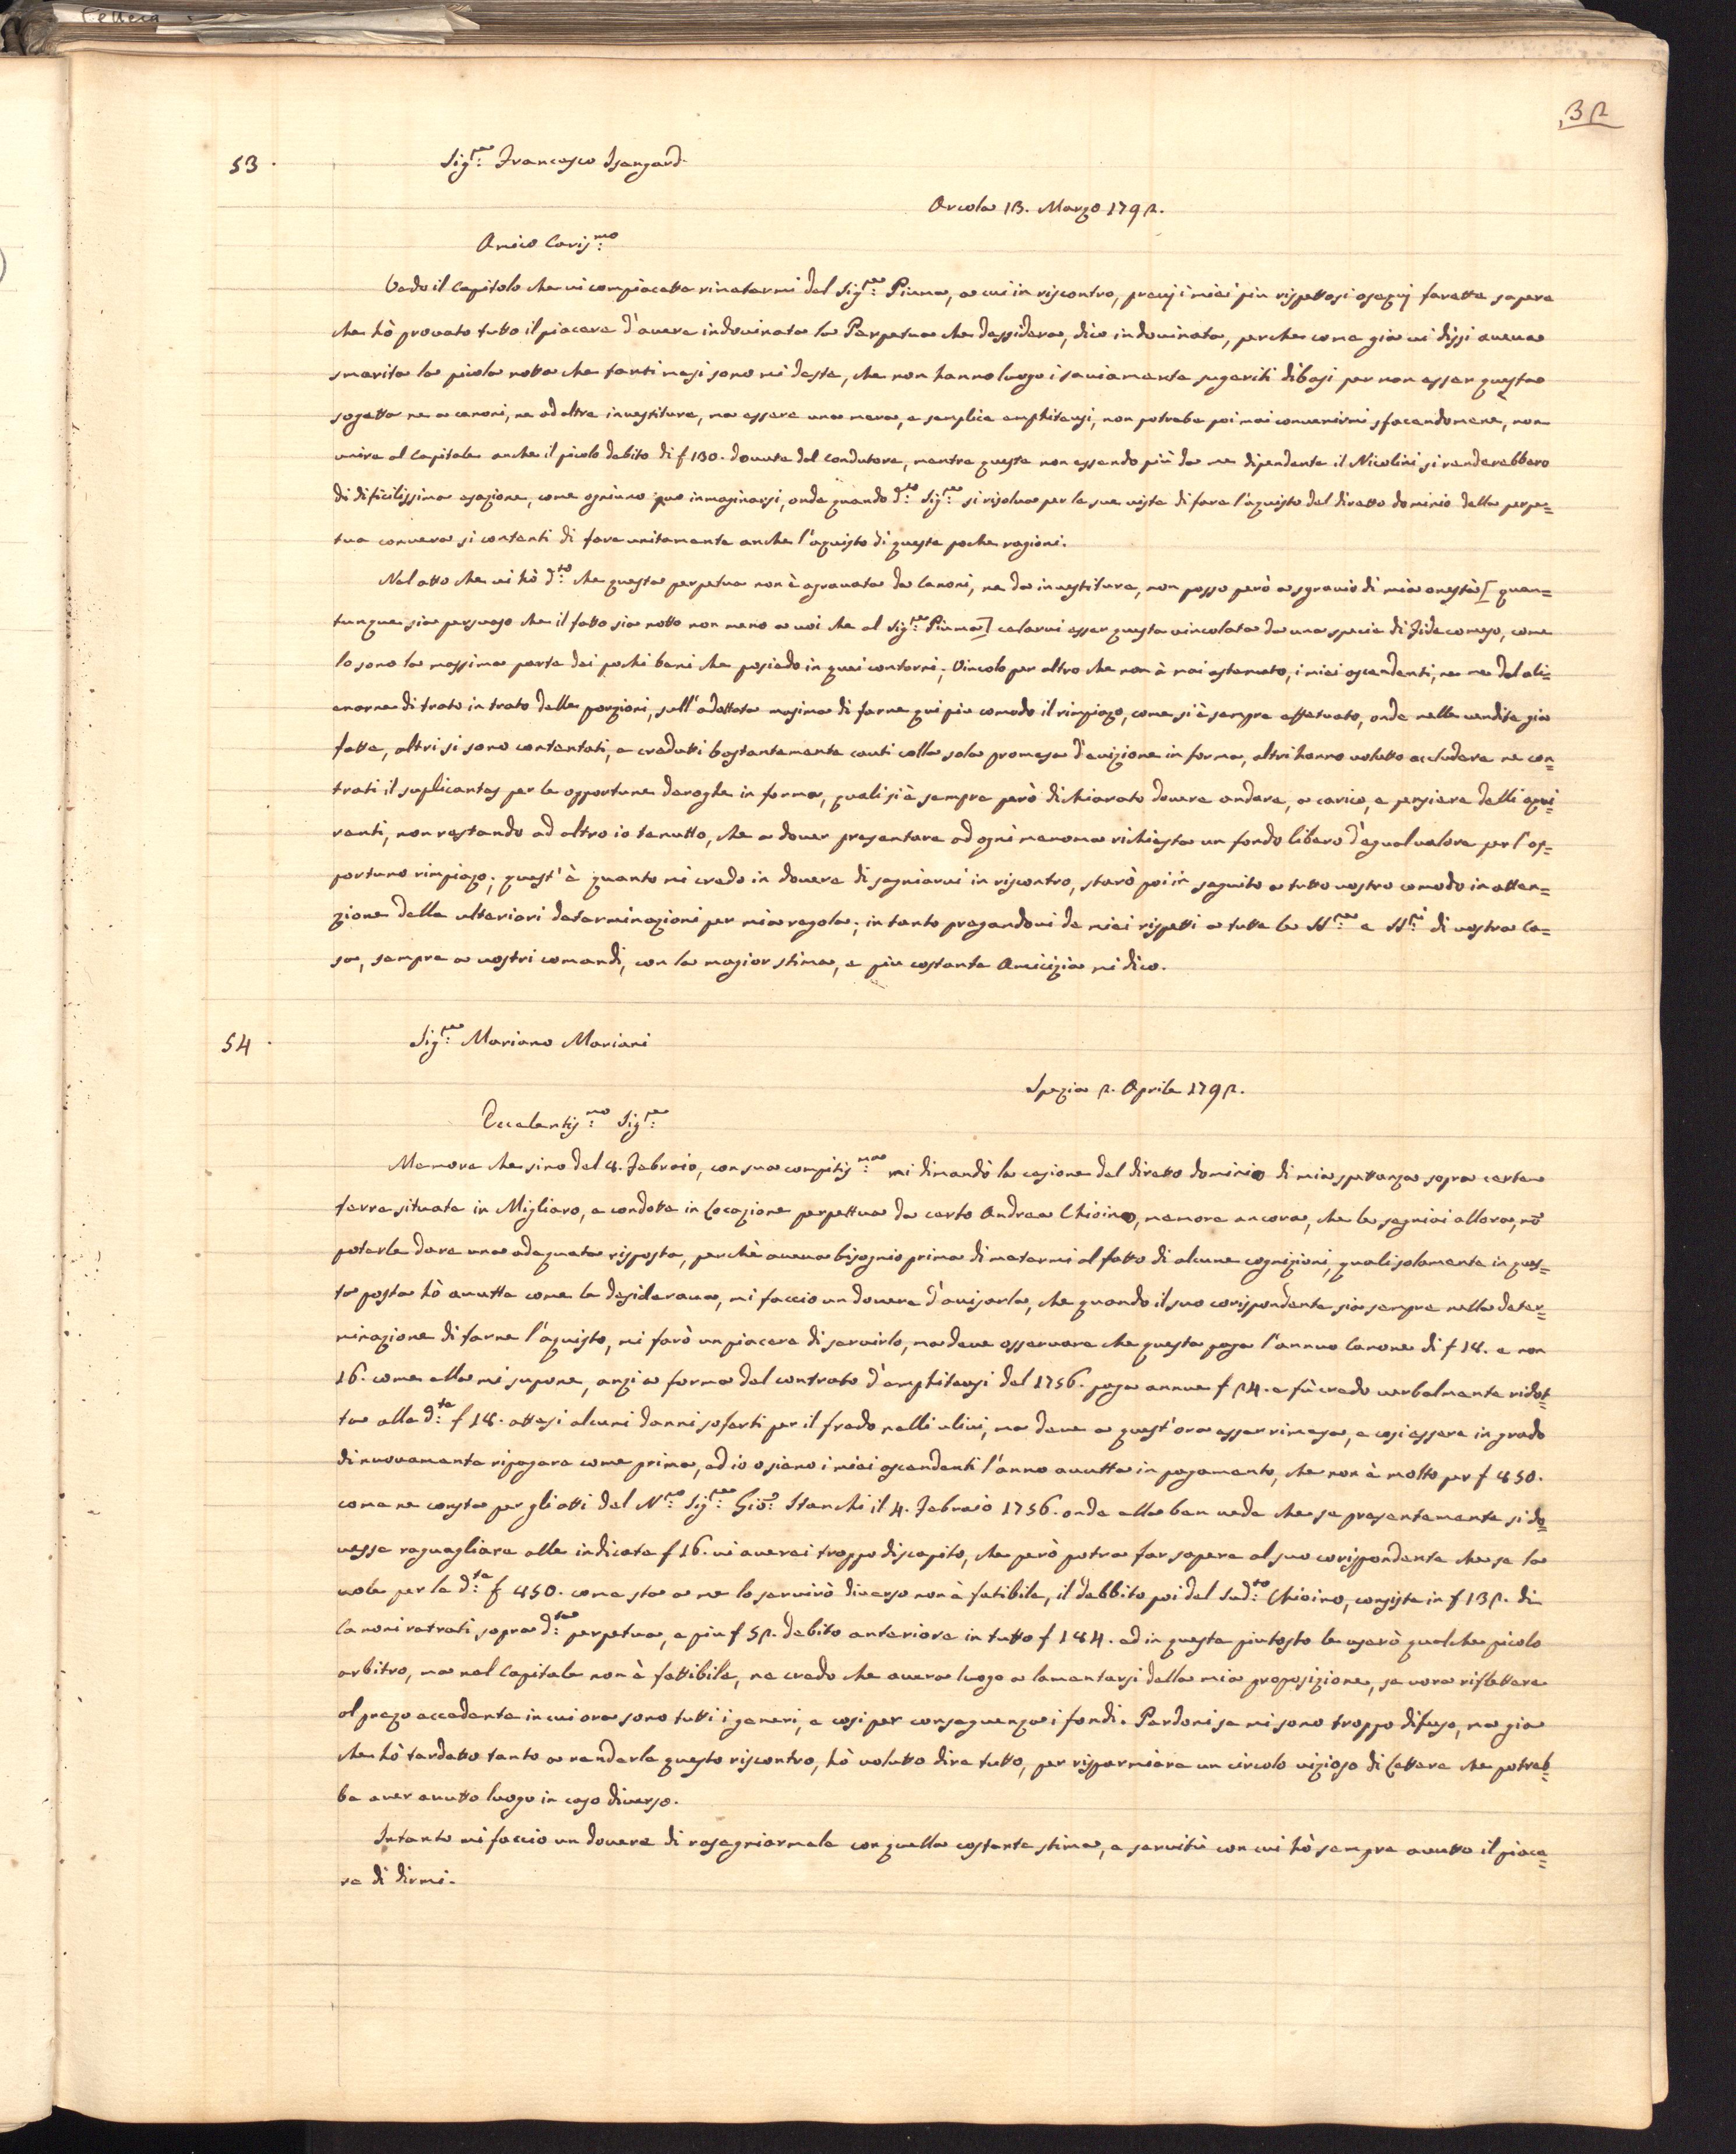 32
53.
Sig:re Francesco Isengard
Arcola 13. Marzo 1792.
Amico Caris:mo
Vedo il Capitolo che vi compiacette rimetermi del Sig:re Piuma, a cui in riscontro, previj i miei più rispettosi osequj farette sapere
che hò provato tutto il piacere d'avere indovinata la Perpetua che dessidera, dico indovinata, perche come gia vi dissi aveva
smarita la picola notta che tanti mesi sono mi deste, che non hanno luogo i saviamente sugeriti dibasi per non esser questa
sogetta ne a canoni, ne ad altre investiture, ma essere una mera, e semplice emphiteusi, non potrebe poi mai convenirmi sfacendomene, non
unire al Capitale anche il picolo debito di f 130. dovute dal condutore, mentre queste non essendo più da me dipendente il Nicolini si renderebbero
di dificilissima esazione, come ogniuno puo inmaginarsi, onde quando d:to Sig:re si risolva per le sue viste di fare l'aquisto del diretto dominio della perpe=
tua converà si contenti di fare unitamente anche l'aquisto di queste poche ragioni.
Nel atto che vi hò d:to che questa perpetua non è agravata da Canoni, ne da investiture, non posso però a sgravio di mia onestà [quan=
tunque sia persuaso che il fatto sia notto non meno a voi che al Sig:re Piuma] celarvi esser questa vincolata da una specie di Fidecomeso, come
lo sono la massima parte dei pochi beni che posiedo in quei contorni; Vincolo per altro che non à mai astenuto, i miei ascendenti, ne me dal ali=
enarne di trato in trato delle porzioni, sull'adottata masima di farne qui piu comodo il rimpiazo, come si è sempre effetuato, onde nelle vendite gia
fatte, altri si sono contentati, e creduti bastantemente cauti colla sola promesa d'evizione in forma, altri hanno volutto accludere ne con=
trati il suplicantes per le opportune deroghe in forma, quali si è sempre però dichiarato dovere andare, a carico, e pensiere delli aqui=
renti, non restando ad altro io tenutto, che a dover presentare ad ogni menoma richiesta un fondo libero d'egual valore per l'op=
portuno rimpiazo; quest'è quanto mi credo in dovere di segniarvi in riscontro, starò poi in seguito a tutto vostro comodo in atten=
zione delle ulteriori determinazioni per mia regola; in tanto pregandovi de miei rispetti a tutte le SS:re e SS:ri di vostra Ca=
sa, sempre a vostri comandi, con la magior stima, e piu costante Amicizia mi dico.
54.
Sig:re Mariano Mariani
Spezia 2. Aprile 1792.
Eccelentis:mo Sig:re
Memore che sino del 8. Febraio, con sua compitis:ma mi dimandò la cesione del diretto dominio di mia spettanza sopra certe
terre situate in Migliaro, e condotte in Locazione perpettua da certo Andrea Chioino, memore ancora, che le segniai allora, nō
poterle dare una adeguata risposta, perchè aveva bisognio prima di metermi al fatto di alcune cognizioni, quali solamente in ques=
ta posta hò avutte come le desiderava, mi faccio un dovere d'avisarla, che quando il suo corispondente sia sempre nella deter=
minazione di farne l'aquisto, mi farò un piacere di servirlo, ma deve osservare che questa paga l'annuo Canone di f 18. e non
16. come ella mi supone, anzi a forma del contrato d'emphiteusi del 1756. paga annue f 24. e fù credo verbalmente ridot=
ta alle d:te f 18. attesi alcuni danni soferti per il fredo nelli ulivi, ma deve a quest'ora esser rimesa, e cosi essere in grado
di nuovamente ripagare come prima, ed io o siano i miei ascendenti l'anno avutta in pagamento, che non è molto per f 850.
come ne consta per gli atti del N:ro Sig:re Gio: Stanchi il 4. Febraio 1756. onde ella ben vede che se presentemente si do=
vesse raguagliare alle indicate f 16. vi averei troppo discapito, che però potra far sapere al suo corispondente che se la
vole per le d:te f 850. come sta a me lo servirò diverso non è fatibile, il debbito poi del Sud:to Chioino, consiste in f 132. di
Canoni retrati, sopra d:ta perpetua, e più f 52. debito anteriore in tutto f 184. ed in queste piutosto le userò qualche picolo
arbitro, ma nel Capitale non è fattibile, ne credo che avera luogo a lamentarsi della mia proposizione, se vora riflettere
al prezo accedente in cui ora sono tutti i generi, e cosi per conseguenza i fondi. Perdoni se mi sono troppo difuso, ma gia
che hò tardatto tanto a renderle questo riscontro, hò volutto dire tutto, per risparmiare un circolo vizioso di Lettere che potreb=
be aver avutto luogo in caso diverso.
Intanto mi faccio un dovere di rasegniarmele con quella costante stima, e servitù con cui hò sempre avutto il piace=
re di dirmi.